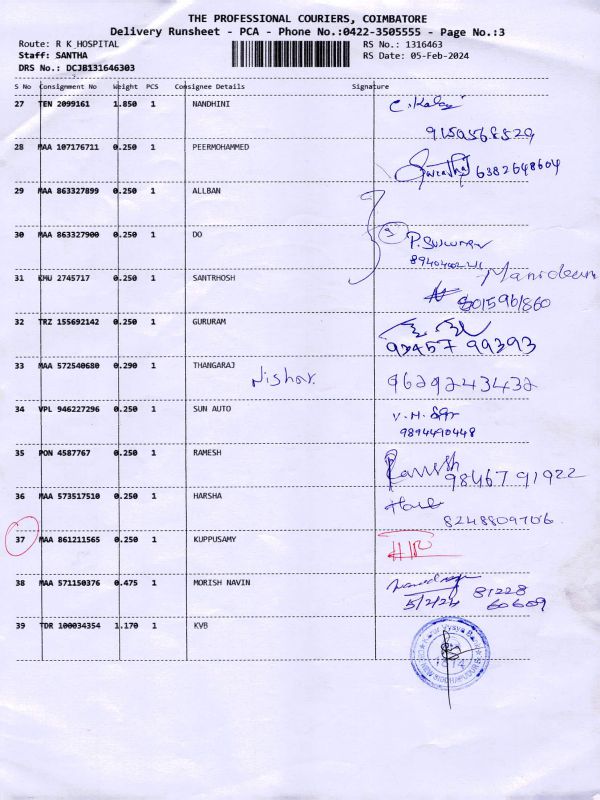 THE PROFESSIONAL COURIERS, COIMBATORE
Delivery Runsheet - PCA - Phone No.:0422-3505555 - Page No.:3
Route: R K HOSPITAL
RS No.: 1316463
Staff: SANTHA
RS Date: 05-Feb-2024
DRS No.: DCJB131646303
S No Consignment No Weight PCS Consignee Details Signature
27 TEN 2099161 1.850 1 NANDHINI
9150568529
28 MAA 107176711 0.250 1 PEERMOHAMMED
6382648604
29 MAA 863327899 0.250 1 ALLBAN
30 MAA 863327900 0.250 1 DO
31 KMU 2745717 0.250 1 SANTRHOSH
8015961860
32 TRZ 155692142 0.250 1 GURURAM
93457 99393
33 MAA 572540680 0.290 1 THANGARAJ
9629243432
34 VPL 946227296 0.250 1 SUN AUTO
9894490448
35 PON 4587767 0.250 1 RAMESH
Ramesh
9846791922
36 MAA 573517510 0.250 1 HARSHA
8248809706
37 MAA 861211565 0.250 1 KUPPUSAMY
38 MAA 571150376 0.475 1 MORISH NAVIN
5/2/24
81228
60609
39 TDR 100034354 1.170 1 KVB